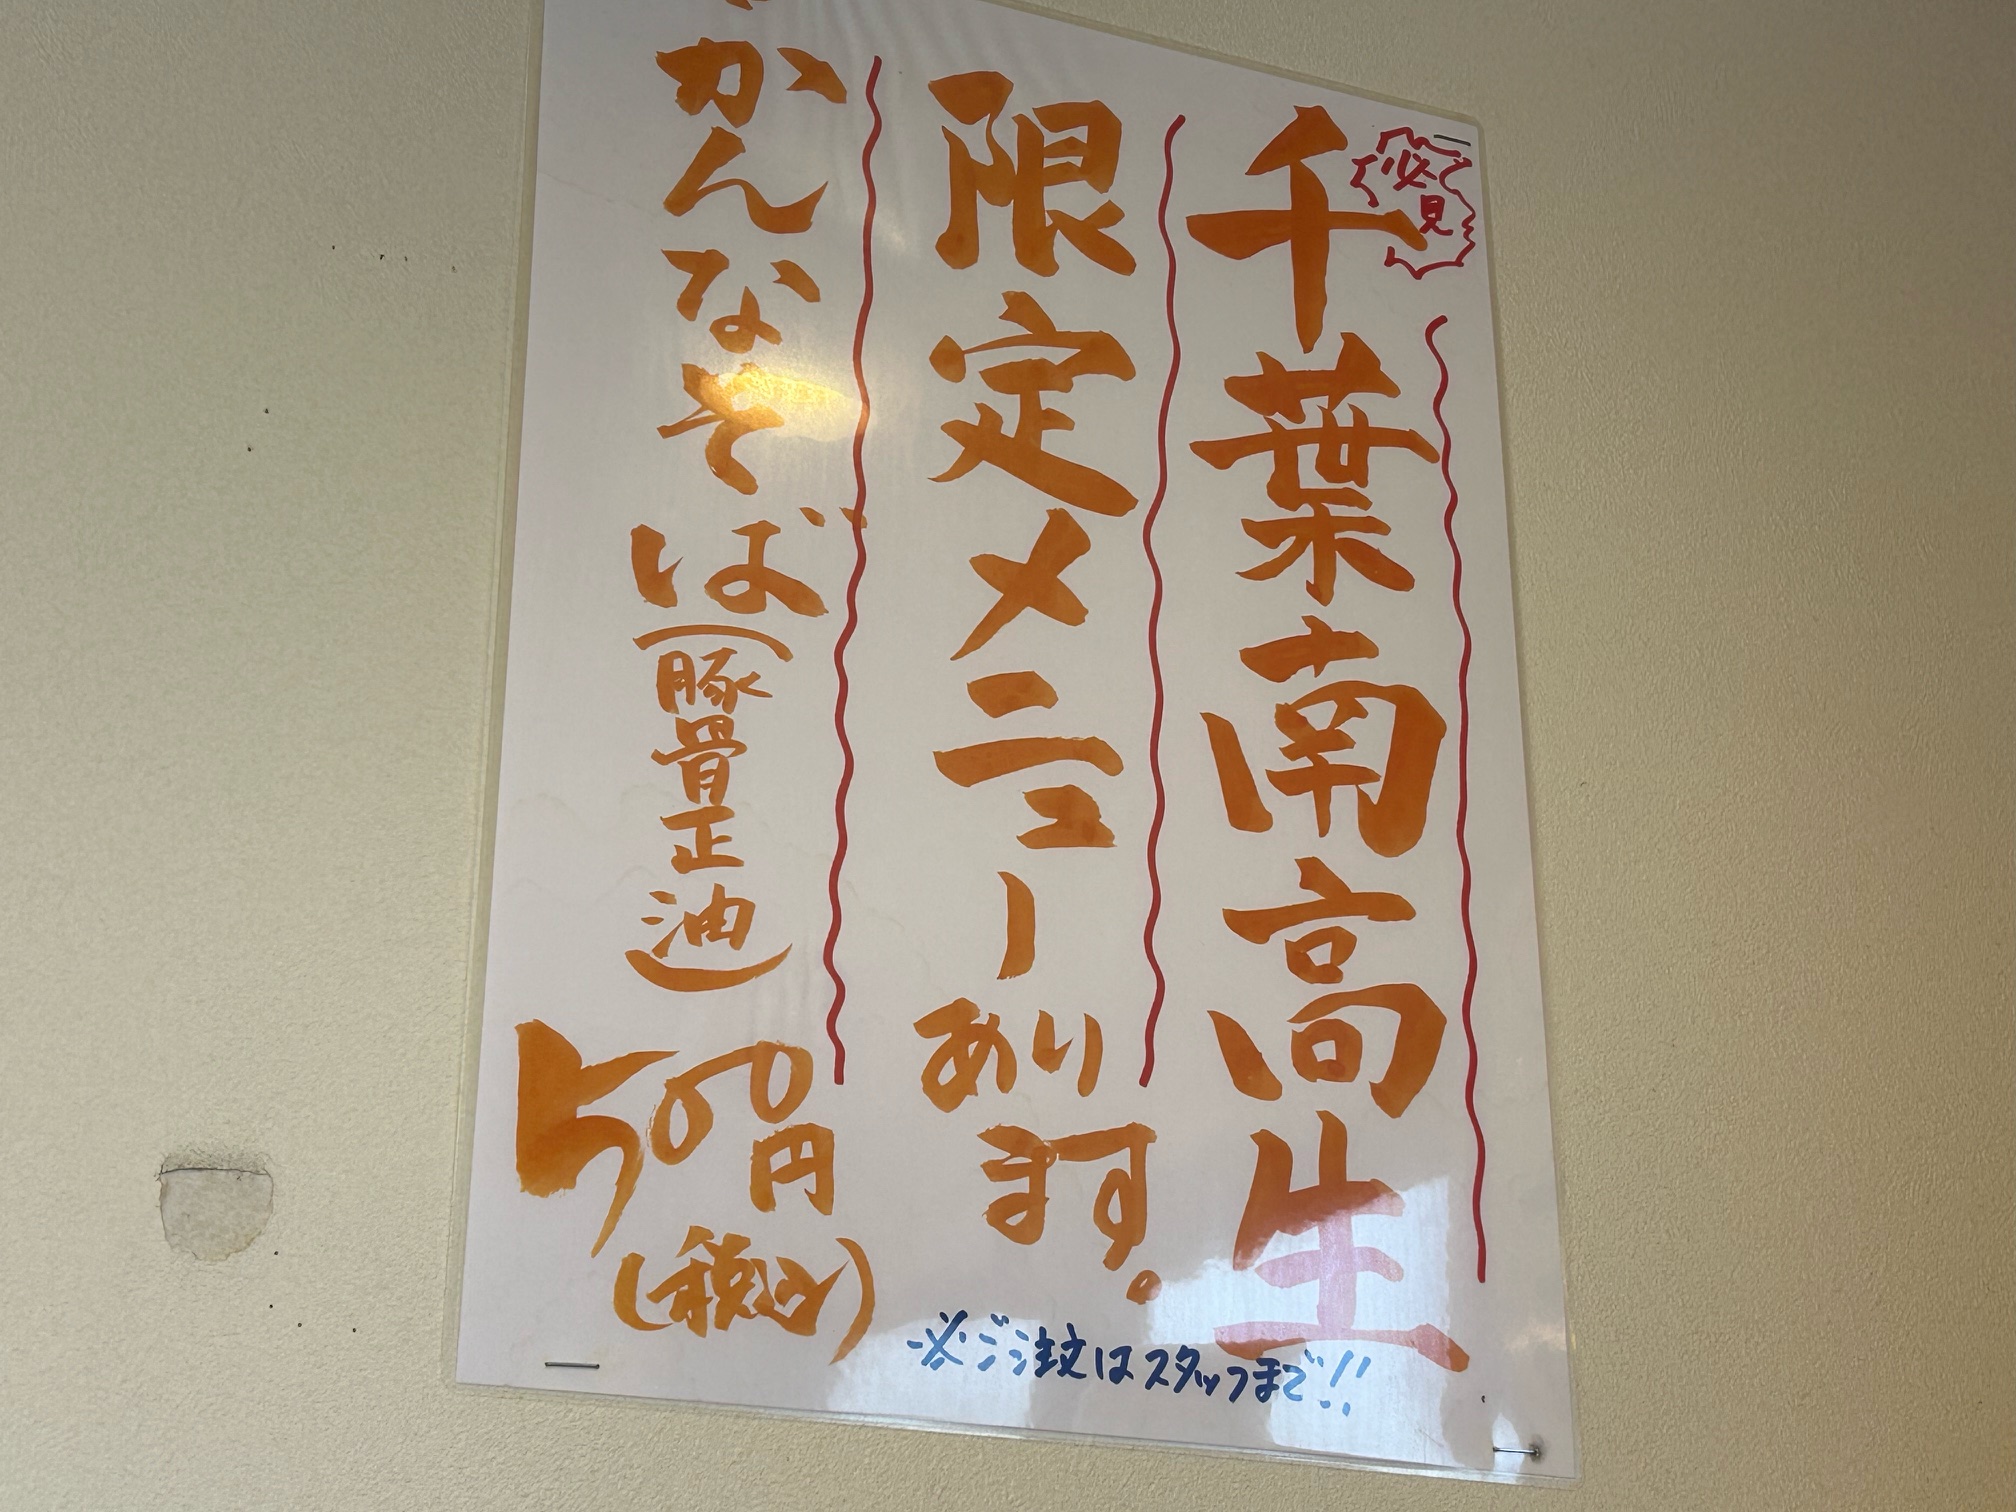 必見
千葉南高生
限定メニューあります。
かんなそば(豚骨正油)
500円
(税込)
※ご注文はスタッフまで!!